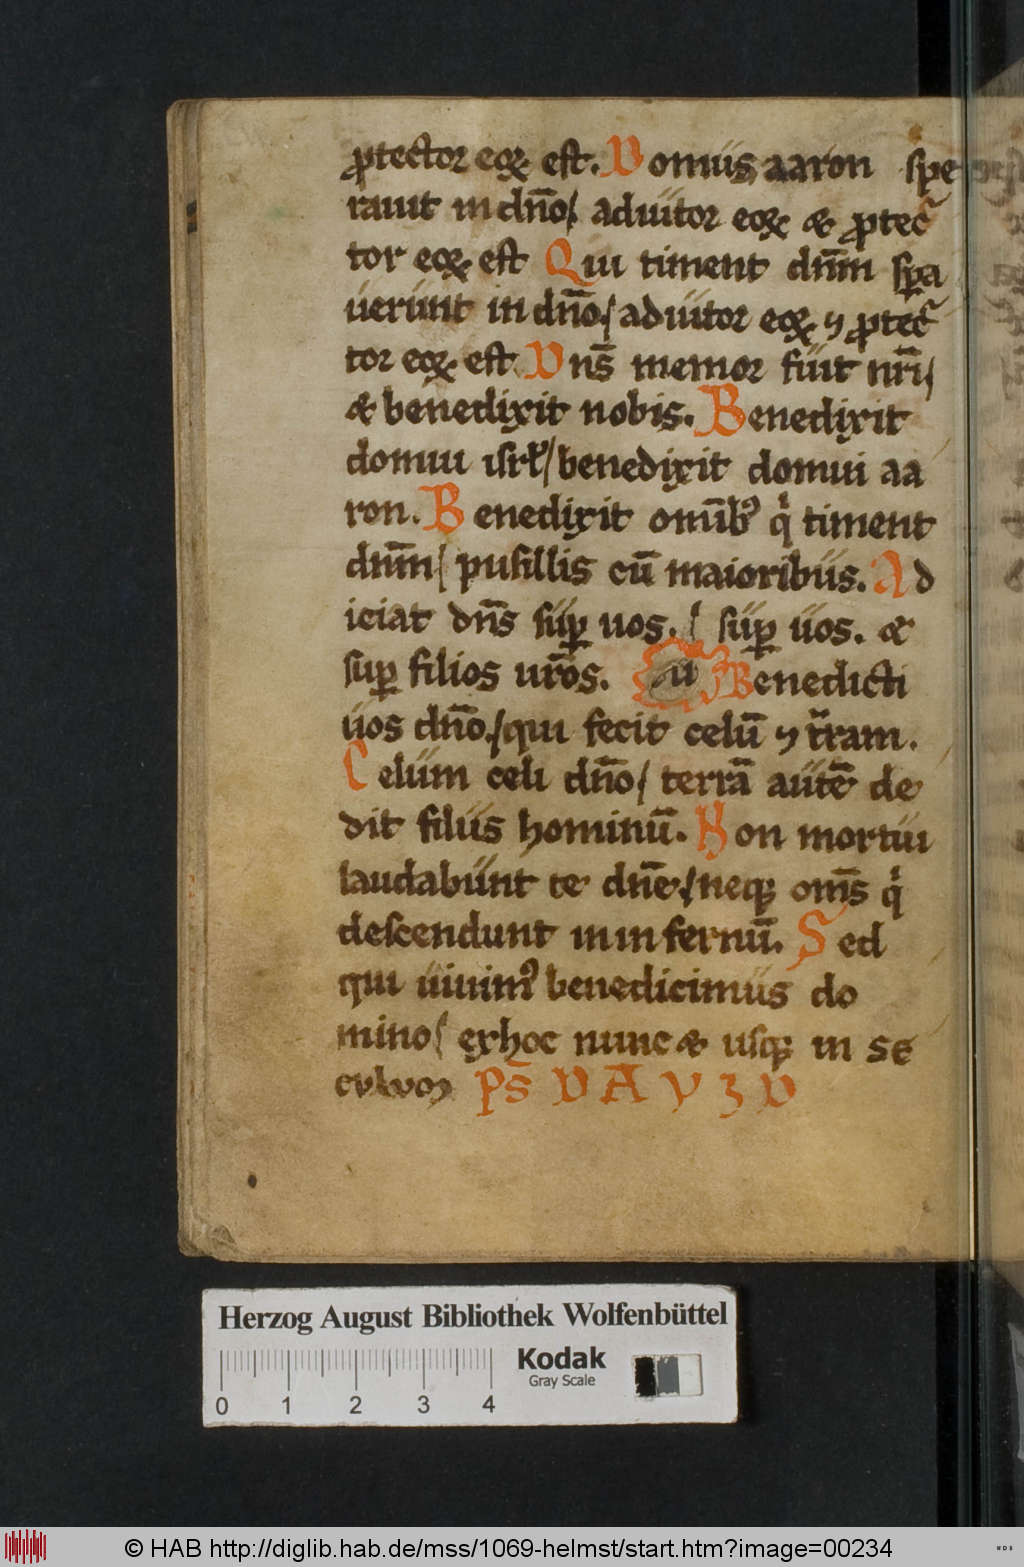 ꝓtector eoꝝ est. Domus aaron spe
rauit in dn̄o/ adiutor eoꝝ & ꝓtec
tor eoꝝ est Qui timent dn̄m sꝑa
uerunt in dn̄o/ adiutor eoꝝ ⁊ ꝓtec
tor eoꝝ est Dns̄ memor fuit nr̄i/
& benedixit nobis. Benedixit
domui isrl̄/ benedixit domui aa
ron. Benedixit om̄ibꝰ qͥ timent
dn̄m/ pusillis cū maioribus. Ad
iciat dn̄s suꝑ uos./ suꝑ uos. &
suꝑ filios ur̄os. Benedicti
uos dn̄o./ qui fecit celū ⁊ tr̄am.
Celum celi dn̄o/ terrā autē de
dit filiis hominū. Non mortui
laudabunt te dn̄e./ neqꝫ om̄s qͥ
descendunt in infernū. Sed
qui uiuimꝰ benedicimus do
mino/ ex hoc nunc & usqꝫ in se
culum ps̄
Herzog August Bibliothek Wolfenbüttel
Kodak
Gray Scale
0 1 2 3 4
© HAB http://diglib.hab.de/mss/1069-helmst/start.htm?image=00234